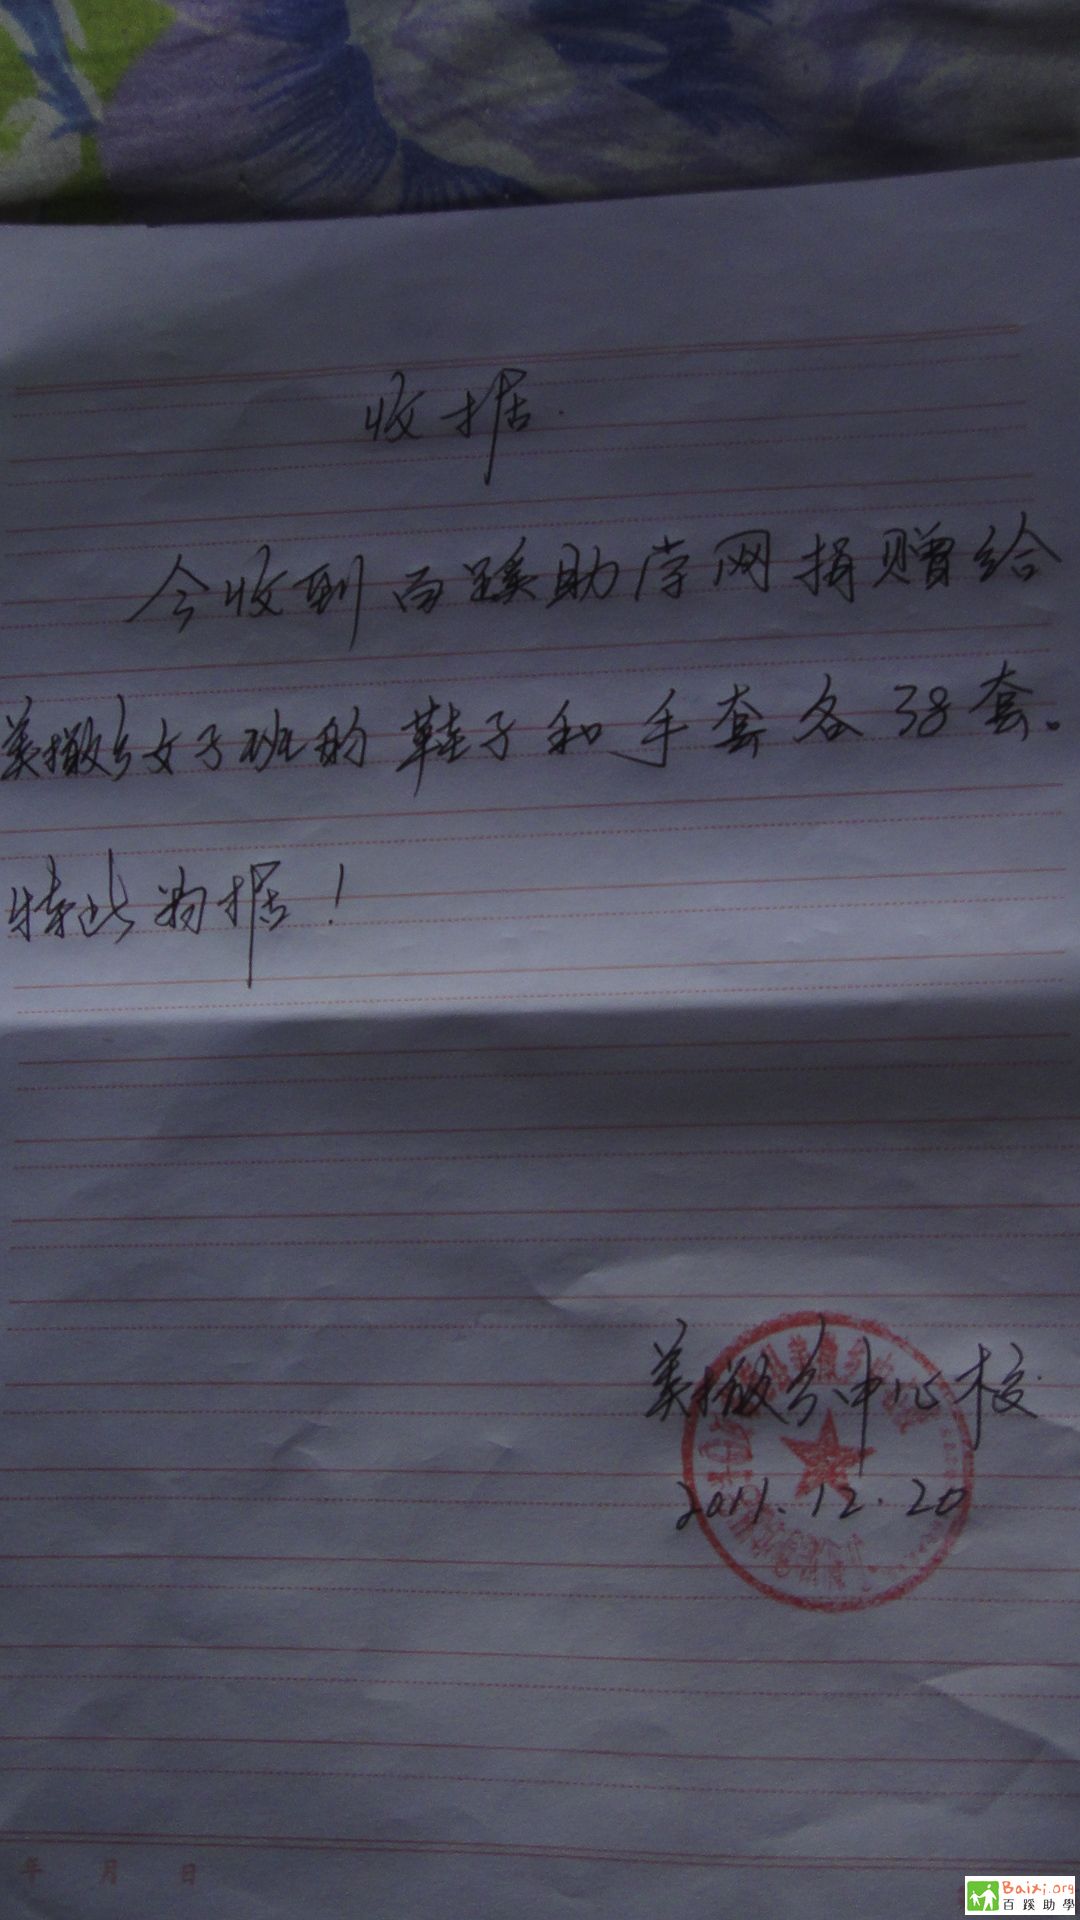 收据.
今收到百蹊助学网捐赠给
美撒乡女子班的鞋子和手套各38套。
特此为据！
美撒乡中心校
2011.12.20
年 月 日
Baixi.org
百蹊助學